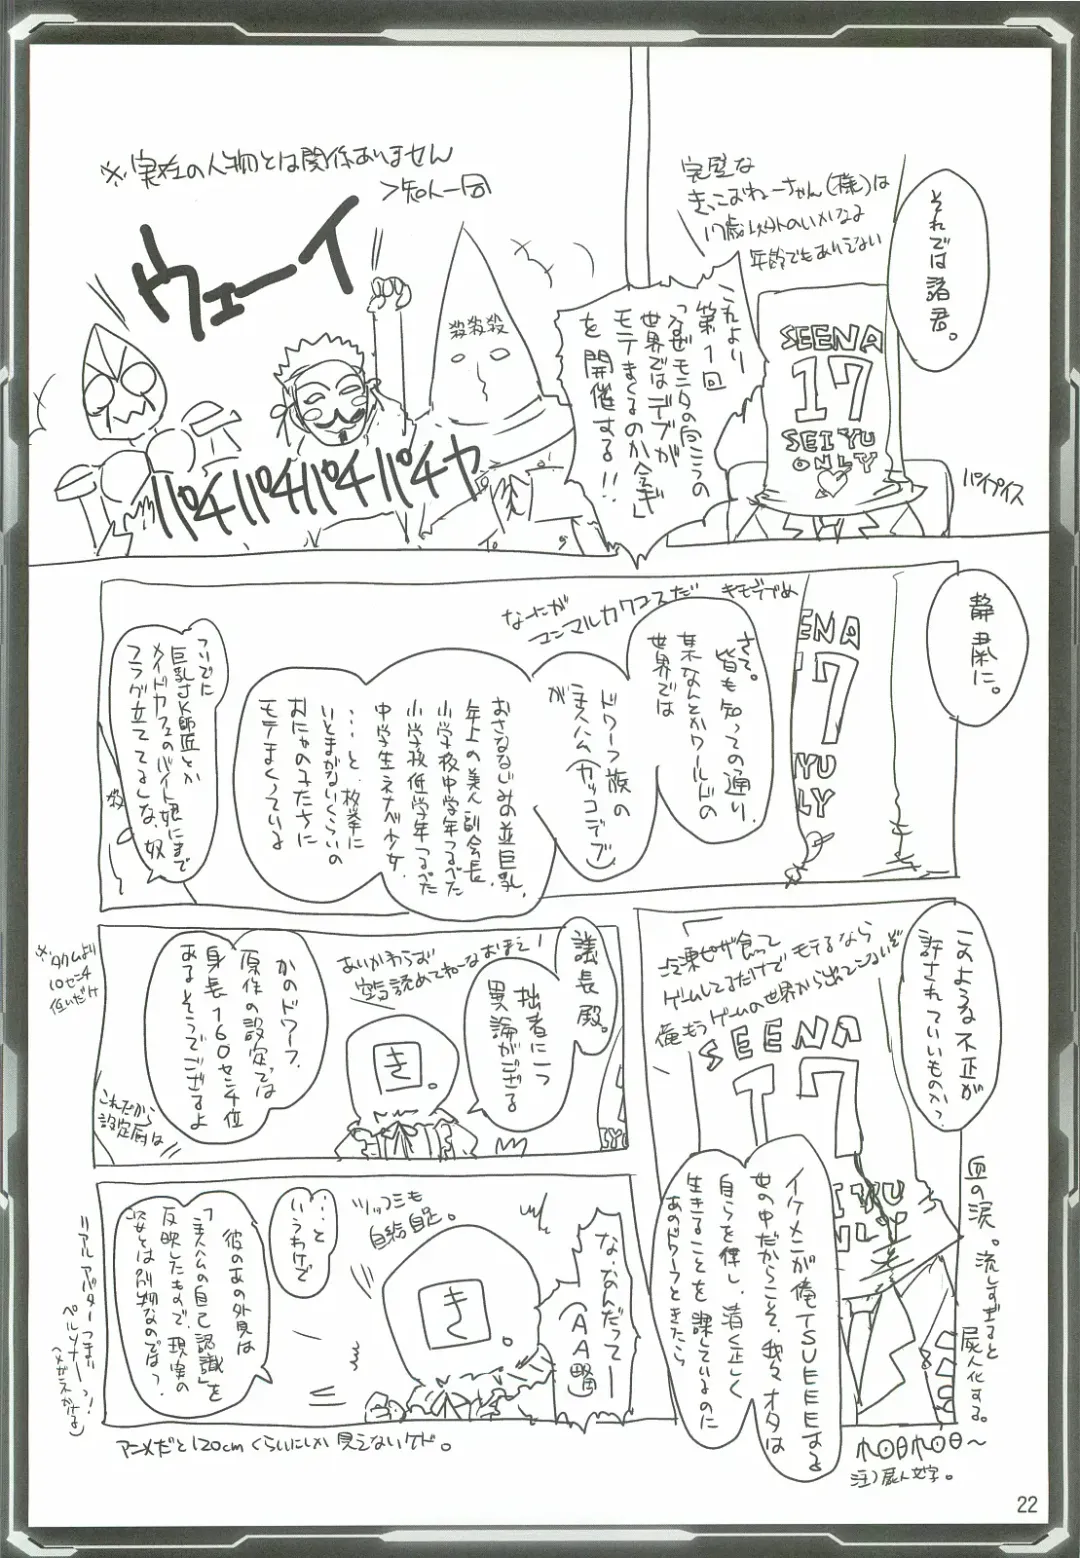 それでは諸君。
完璧な
きっこおねーちゃん(様)は
17歳以外のいかなる
年齢でもありえない
SEENA
17
SEIYU
ONLY
パイプイス
これより
第1回
「なぜモニタの向こうの
世界ではデブが
モテまくるのか会ぎ」
を開催する!!
※実在の人物とは関係ありません
>知人一同
ウェーイ
殺殺殺
パチパチパチパチャ
静粛に。
EENA
17
IYU
LY
キモデブめ
なーたが
マンマルカワユスだ
さて。
皆も知っての通り、
某なんとかワールドの
世界では
ドワーフ族の
主人公(カッコデブ)
が
おさななじみの並巨乳、
年上の美人副会長、
小学校中学年つるぺた
小学校低学年つるぺた
中学生ネナベ少女、
……と、枚挙に
いとまがないくらいの
おにゃの子たちに
モテまくっている
ついでに
巨乳JK師匠とか
メイドカフェのバイト娘にまで
フラグ立ててるしな、奴
殺
このような不正が
許されていいものか?
冷凍ピザ食って
ゲームしてるだけでモテるなら
俺もうゲームの世界から出てこないぞ
SEENA
17
IYU
NLY
イケメンが俺TSUEEEする
世の中だからこそ、我々オタは
自らを律し、清く正しく
生きることを課しているのに
あのドワーフときたら
血の涙。流しすぎると
屍人化する。
注)屍人文字。
議長殿。
拙者に一つ
異論がござる
あいかわらず
空気読めてねーなおまえ!
き。
かのドワーフ、
原作の設定っては
身長160センチ位
あるそうでござるよ
※タクムより
10センチ
低いだけ
これだから
設定厨は
な、なんだってー
(AA略)
ツッコミも
自給自足。
き。
……と
いうわけで
彼のあの外見は
「主人公の自己認識」を
反映したもので、現実の
姿とは別物なのでは?
リアルアバターつまぁーっ!
ペルソナー!
(メガネかける)
アニメだと120cmくらいにしか見えないケド。
22